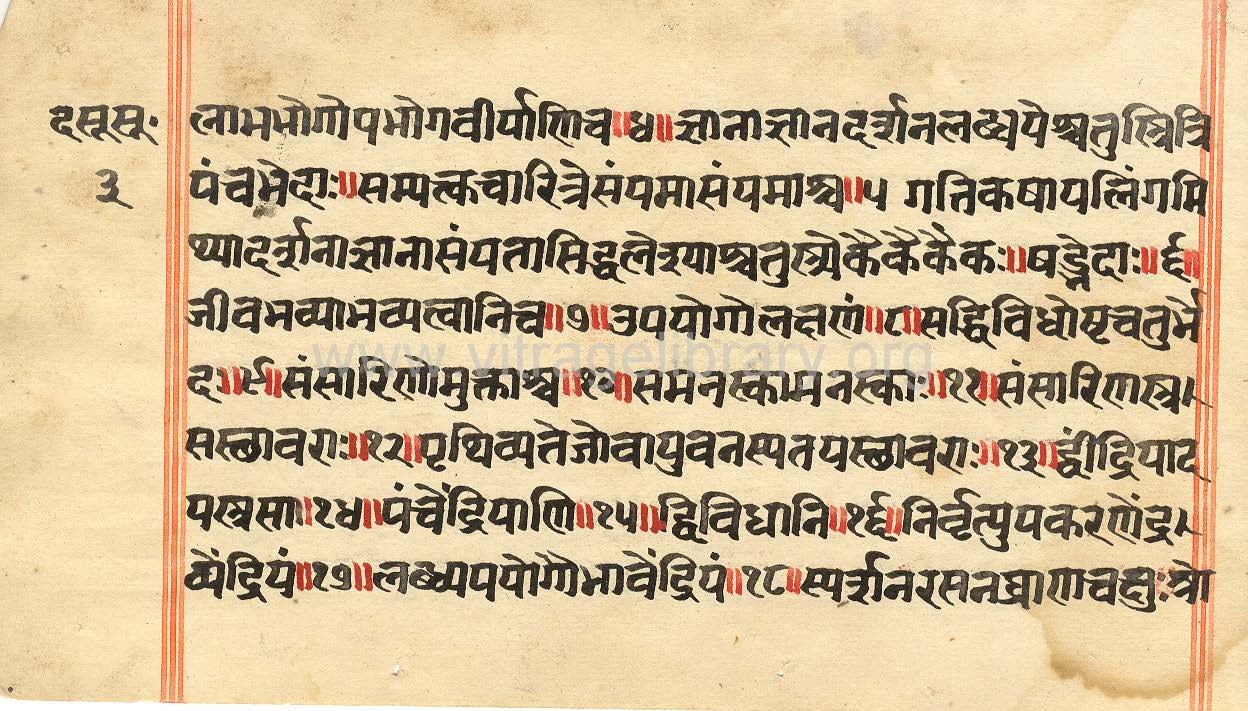 दसूसूः
३
लाभभोगोपभोगवीर्याणिच॥४॥ज्ञानाज्ञानदर्शनलब्धयेश्चतुस्त्रित्रि
पंचभेदाः॥सम्यत्कचारित्रेसंयमासंयमाश्च॥५ गतिकषायलिंगमि
थ्यादर्शनाज्ञानासंयतासिद्धलेश्याश्चतुस्त्र्येकैकैकैकः॥षड्भेदाः॥६॥
जीवभव्याभव्यत्वानिच॥७॥उपयोगोलक्षणं॥८॥सद्विविधोष्टचतुर्भे
दः॥९॥संसारिणोमुक्ताश्च॥१०॥समनस्कामनस्काः॥११॥संसारिणस्त्र।
सस्छावराः॥१२॥पृथिव्यप्तेजोवायुवनस्पतयस्छावराः॥१३॥द्वींद्रियाद
यस्त्रसाः॥१४॥पंचेंद्रियाणि॥१५॥द्विविधानि॥१६॥निर्वृत्युपकरणेंद्र।
व्येंद्रियं॥१७॥लब्ध्युपयोगौभावेंद्रियं॥१८॥स्पर्शनरसनघ्राणचक्षुःश्रो
www.vitragelibrary.org